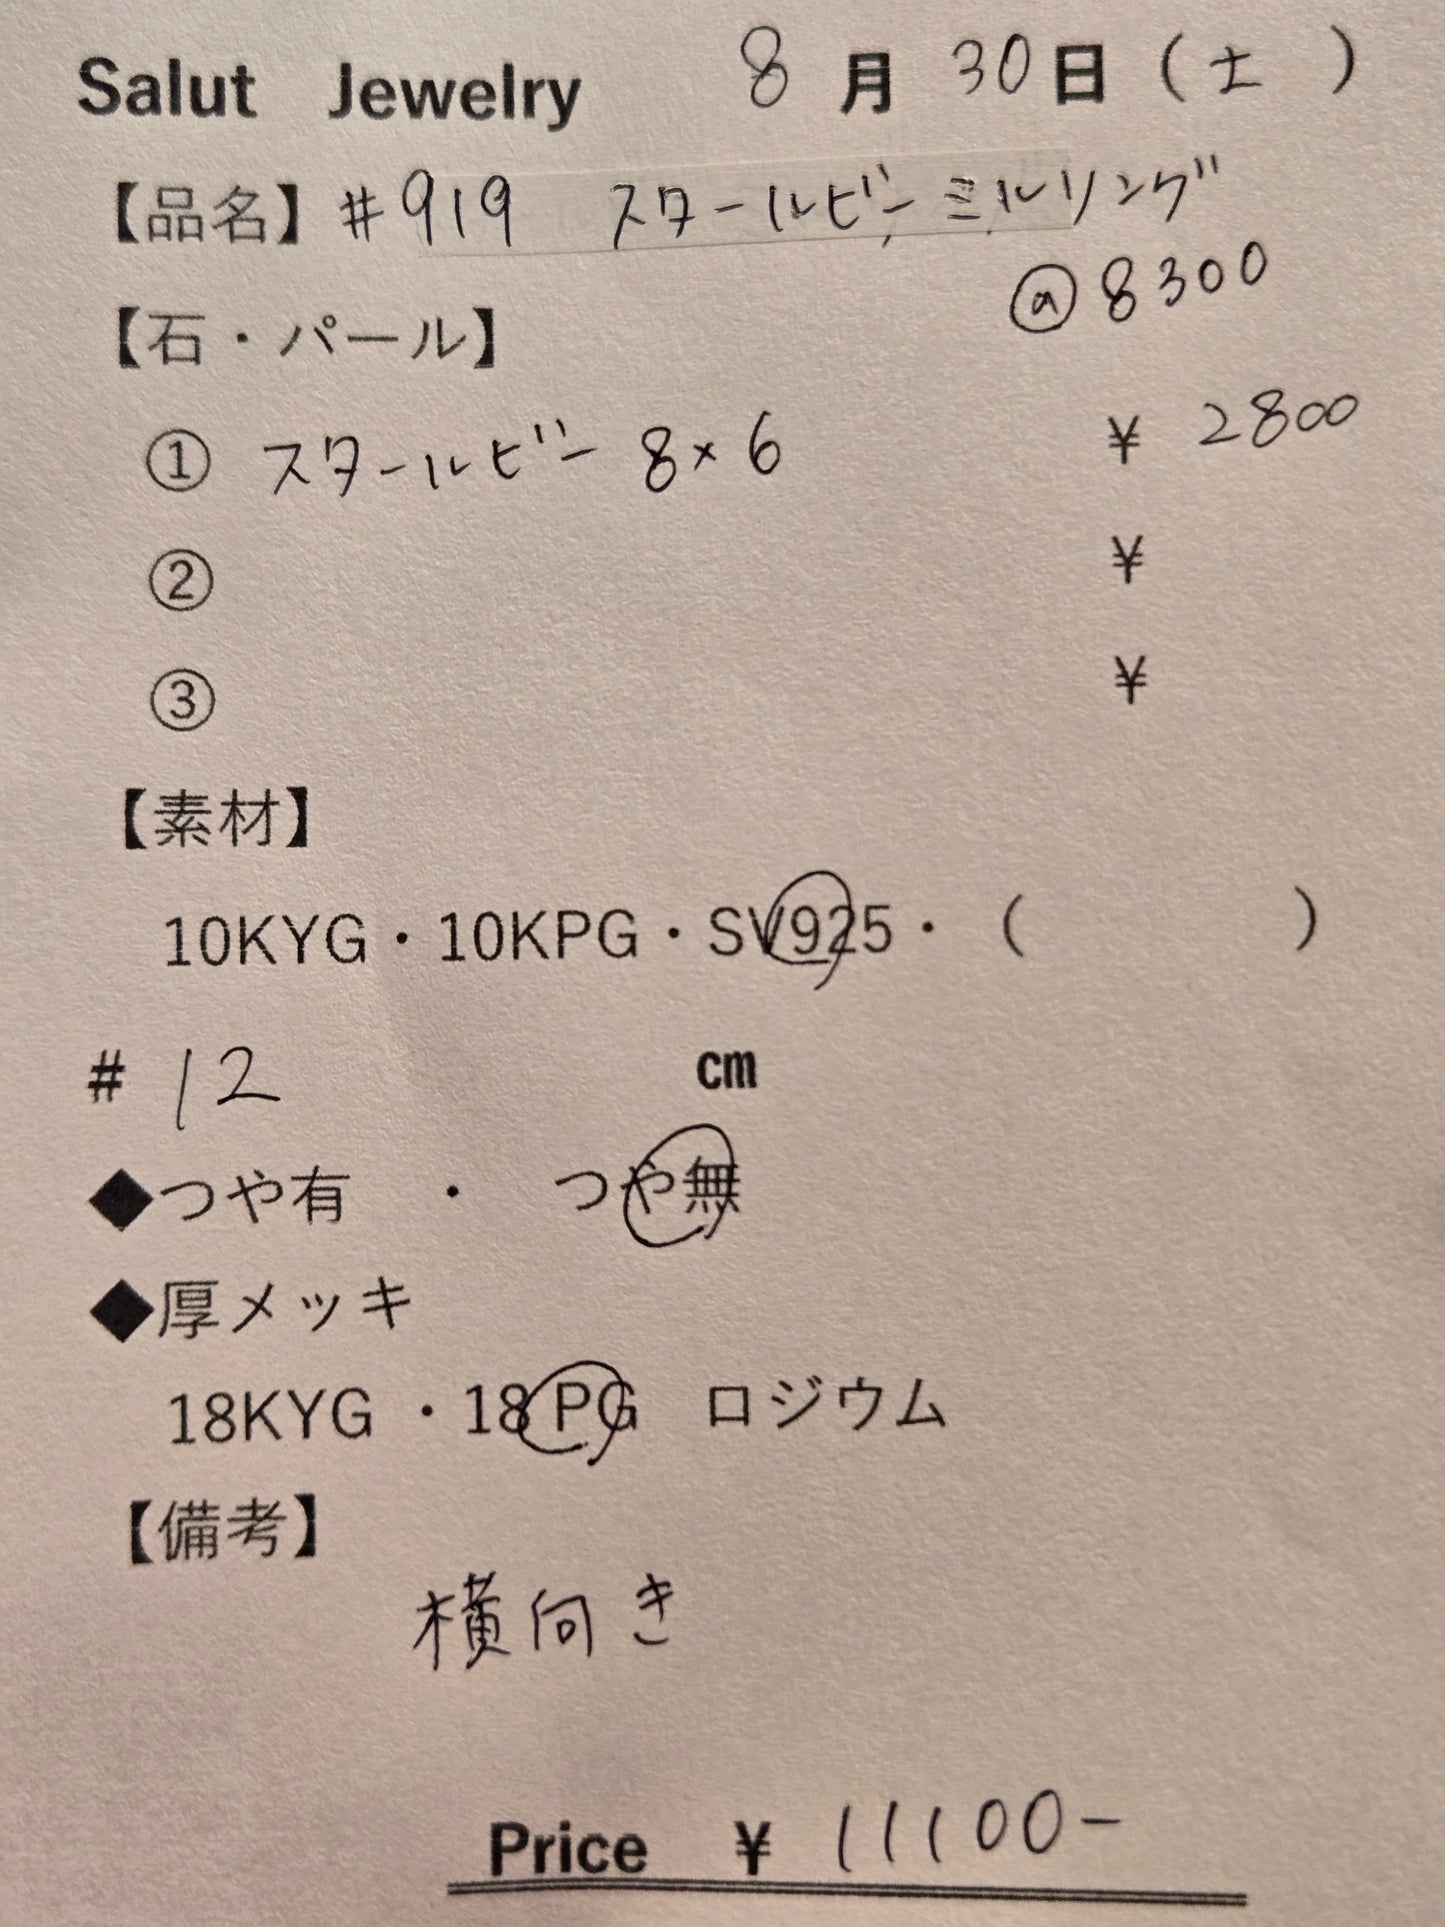 Salut Jewelry 8月30日(土)
【品名】#919 スタールビーミルリング
@8300
【石・パール】
① スタールビー 8×6 ¥2800
② ¥
③ ¥
【素材】
10KYG・10KPG・SV925・( )
# 12 cm
◆つや有 ・ つや無
◆厚メッキ
18KYG ・18 PG ロジウム
【備考】
横向き
Price ¥ 11100-